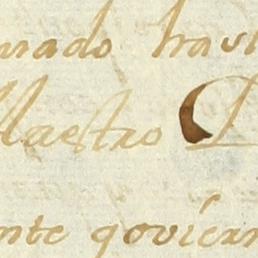 mado havi
Maestro D
nte goviern